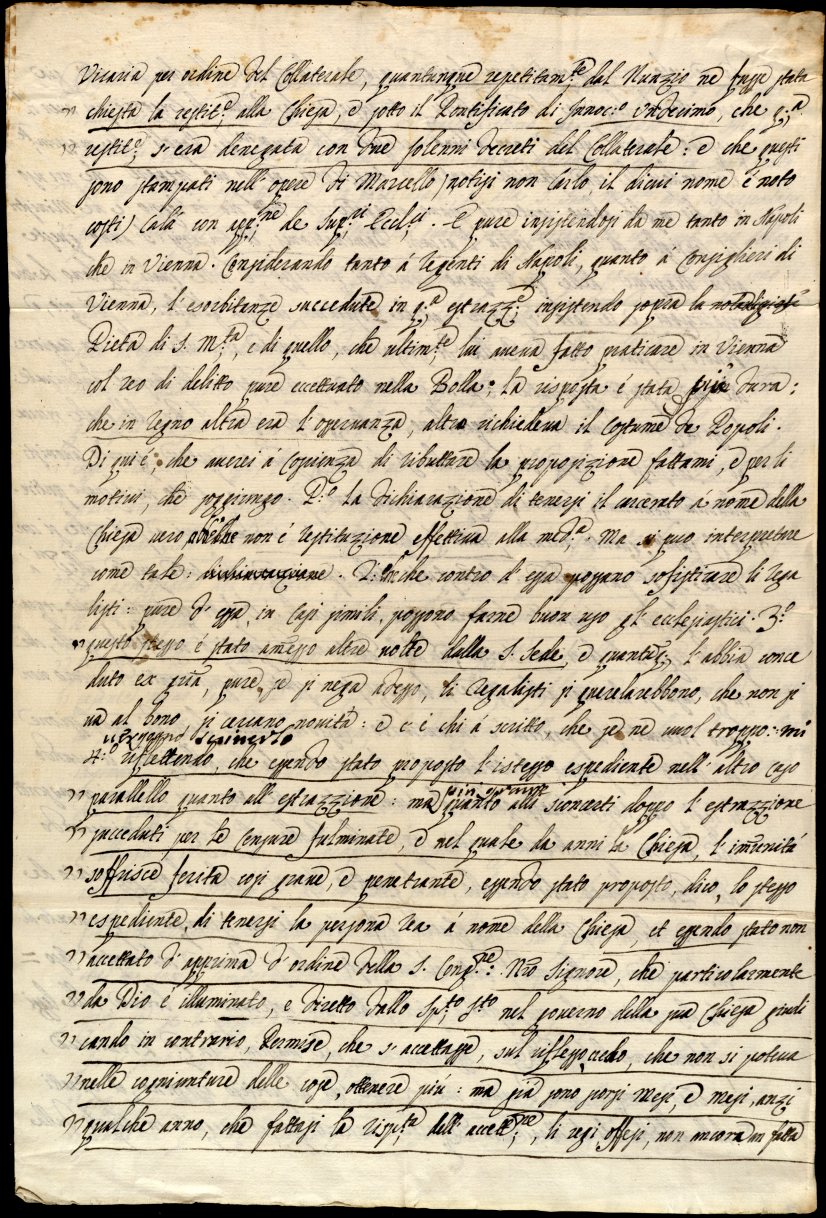 Vicaria per ordine del Collaterale, quantunque repetitam.te dal Nunzio ne fusse stata
chiesta la restit.e alla Chiesa, e sotto il Pontificato di Innoc.o Undecimo, che q.a
restit.e s'era denegata con due solenni decreti del Collaterale: e che questi
sono stampati nell'opere di Marcello (notisi non Carlo il di cui nome è noto
costì) Calà con app.ne de Sup.ri Eccl.ci. E pure insistendosi da me tanto in Napoli
che in Vienna. Considerando tanto á Regenti di Napoli, quanto á Consiglieri di
Vienna, l'esorbitanze succedute in q.a estrazz.e insistendo sopra la
Pietà di S. M.tà, e di quello, che ultim.te lui aveva fatto praticare in Vienna
col reo di delitto pure eccettuato nella Bolla; la risposta é stata più dura:
che in Regno altra era l'osservanza, altro richiedeva il Costume de Popoli.
Di qui é, che averei á Coscienza di ributtare la proposizione fattami, e per li
motivi, che soggiungo. P.o la dichiarazione di tenersi il carcerato á nome della
Chiesa vero abbenche non é restituzione effettiva alla med.a. Ma si puo interpretare
come tale: . 2.o benche contro d'essa possano sofisticare li Rega
listi: pure d'essa in casi simili possono farne buon uso gl'ecclesiastici. 3.o
questo stesso é stato amesso altre volte dalla S. Sede, e quantuq; l'abbia conce
duto ex gratia, pure se si nega adesso, li Regalisti si querelarebbono, che non si
va al bono, si cercano novità: e c'é chi á scritto, che se ne vuol troppo:
4.o riflettendo, che essendo stato proposto l'istesso espediente nell'altro caso
parallello quanto all'estrazzione: ma quanto alli sconcerti doppo l'estrazzione
succeduti, per le Censure fulminate, e nel quale da anni la Chiesa, l'imunità
soffrisce ferita così grave, e penetrante, essendo stato proposto, dico, lo stesso
espediente, di tenersi la persona rea á nome della Chiesa, et essendo stato non
accettato d'apprima d'ordine della S. Cong.ne: N.ro Signore, che particolarmente
da Dio é illuminato, e diretto dallo Sp.to S.to nel governo della sua Chiesa giudi
cando in contrario, Permise, che s'accettasse, sul riflesso, che non si poteva
nelle congiunture delle cose, ottenere più: ma già sono scorsi Mesi, e mesi, anzi
qualche anno, che fattasi la risp.ta dell'accett.ne, li regi offesi, non ancora in fatta